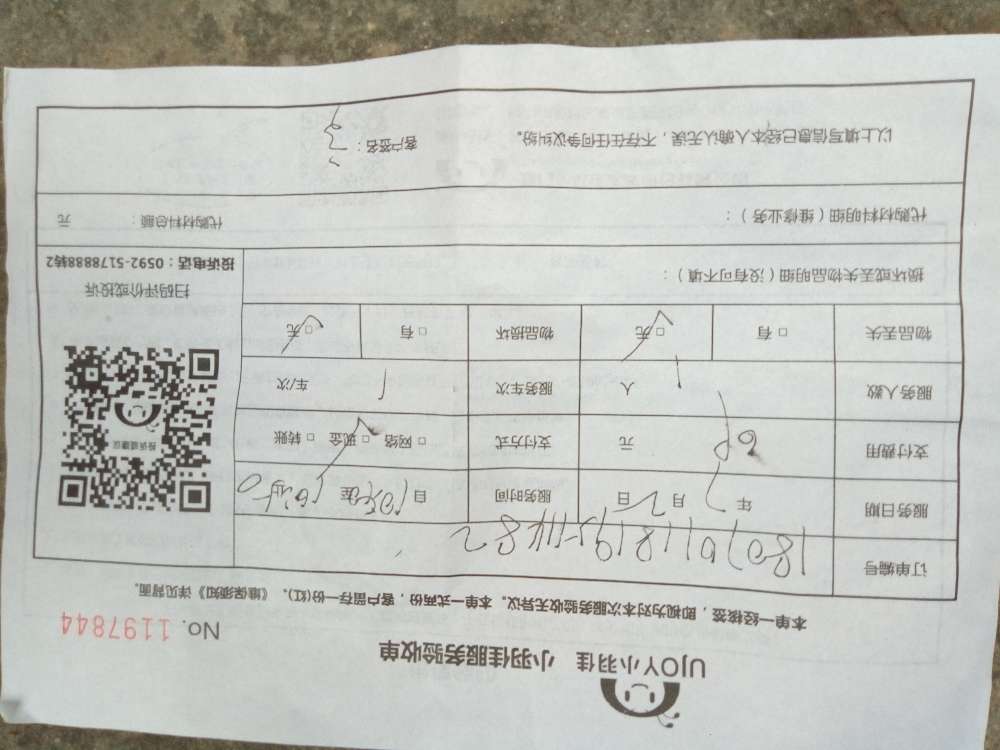 UJOY小羽佳 小羽佳服务验收单
No. 1197844
本单一经核签，即视为对本次服务验收无异议。本单一式两份，客户留存一份(红)。《维保须知》详见背面。
订单编号
服务日期 年 月 日 服务时间 自 至
支付费用 元 支付方式 □ 网络 □ 现金 □ 转账
服务人数 1 人 服务车次 1 车/次
物品丢失 □ 有 □ 无 物品损坏 □ 有 □ 无
投诉或建议
扫码评价或投诉
投诉电话：0592-5178888转2
损坏或丢失物品明细（没有可不填）：
代购材料明细（维修业务）： 代购材料总额： 元
以上填写信息已经本人确认无误，不存在任何争议纠纷。 客户签名：